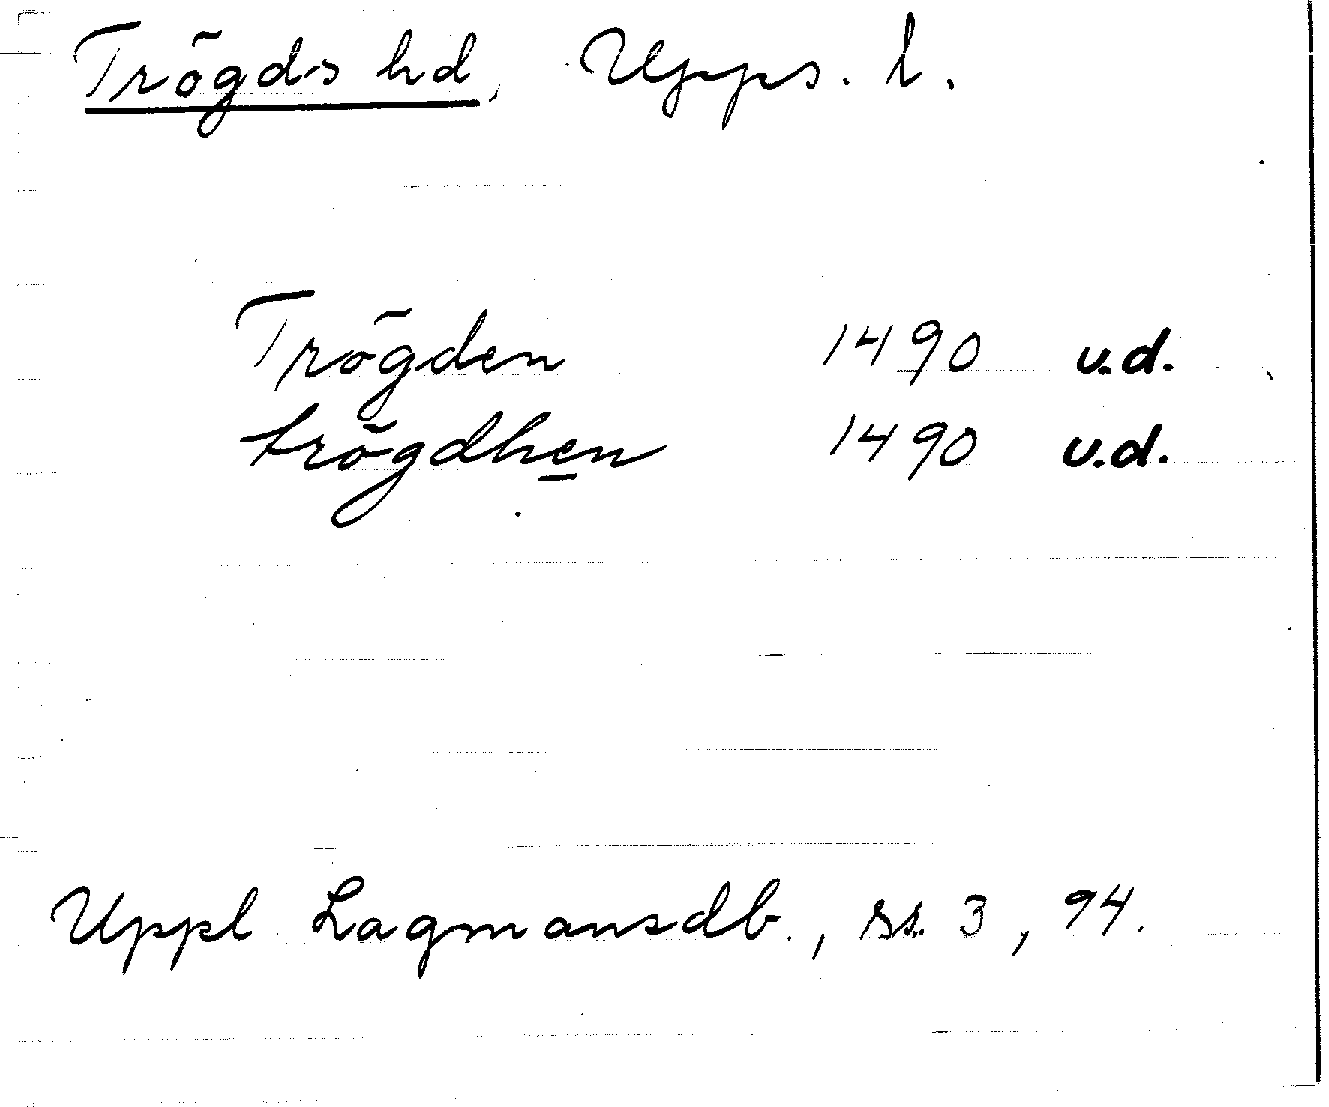 Trögds hd, Upps. l.
Trögden 1490 u.d.
trögdhen 1490 u.d.
Uppl Lagmansdb., ss. 3, 94.